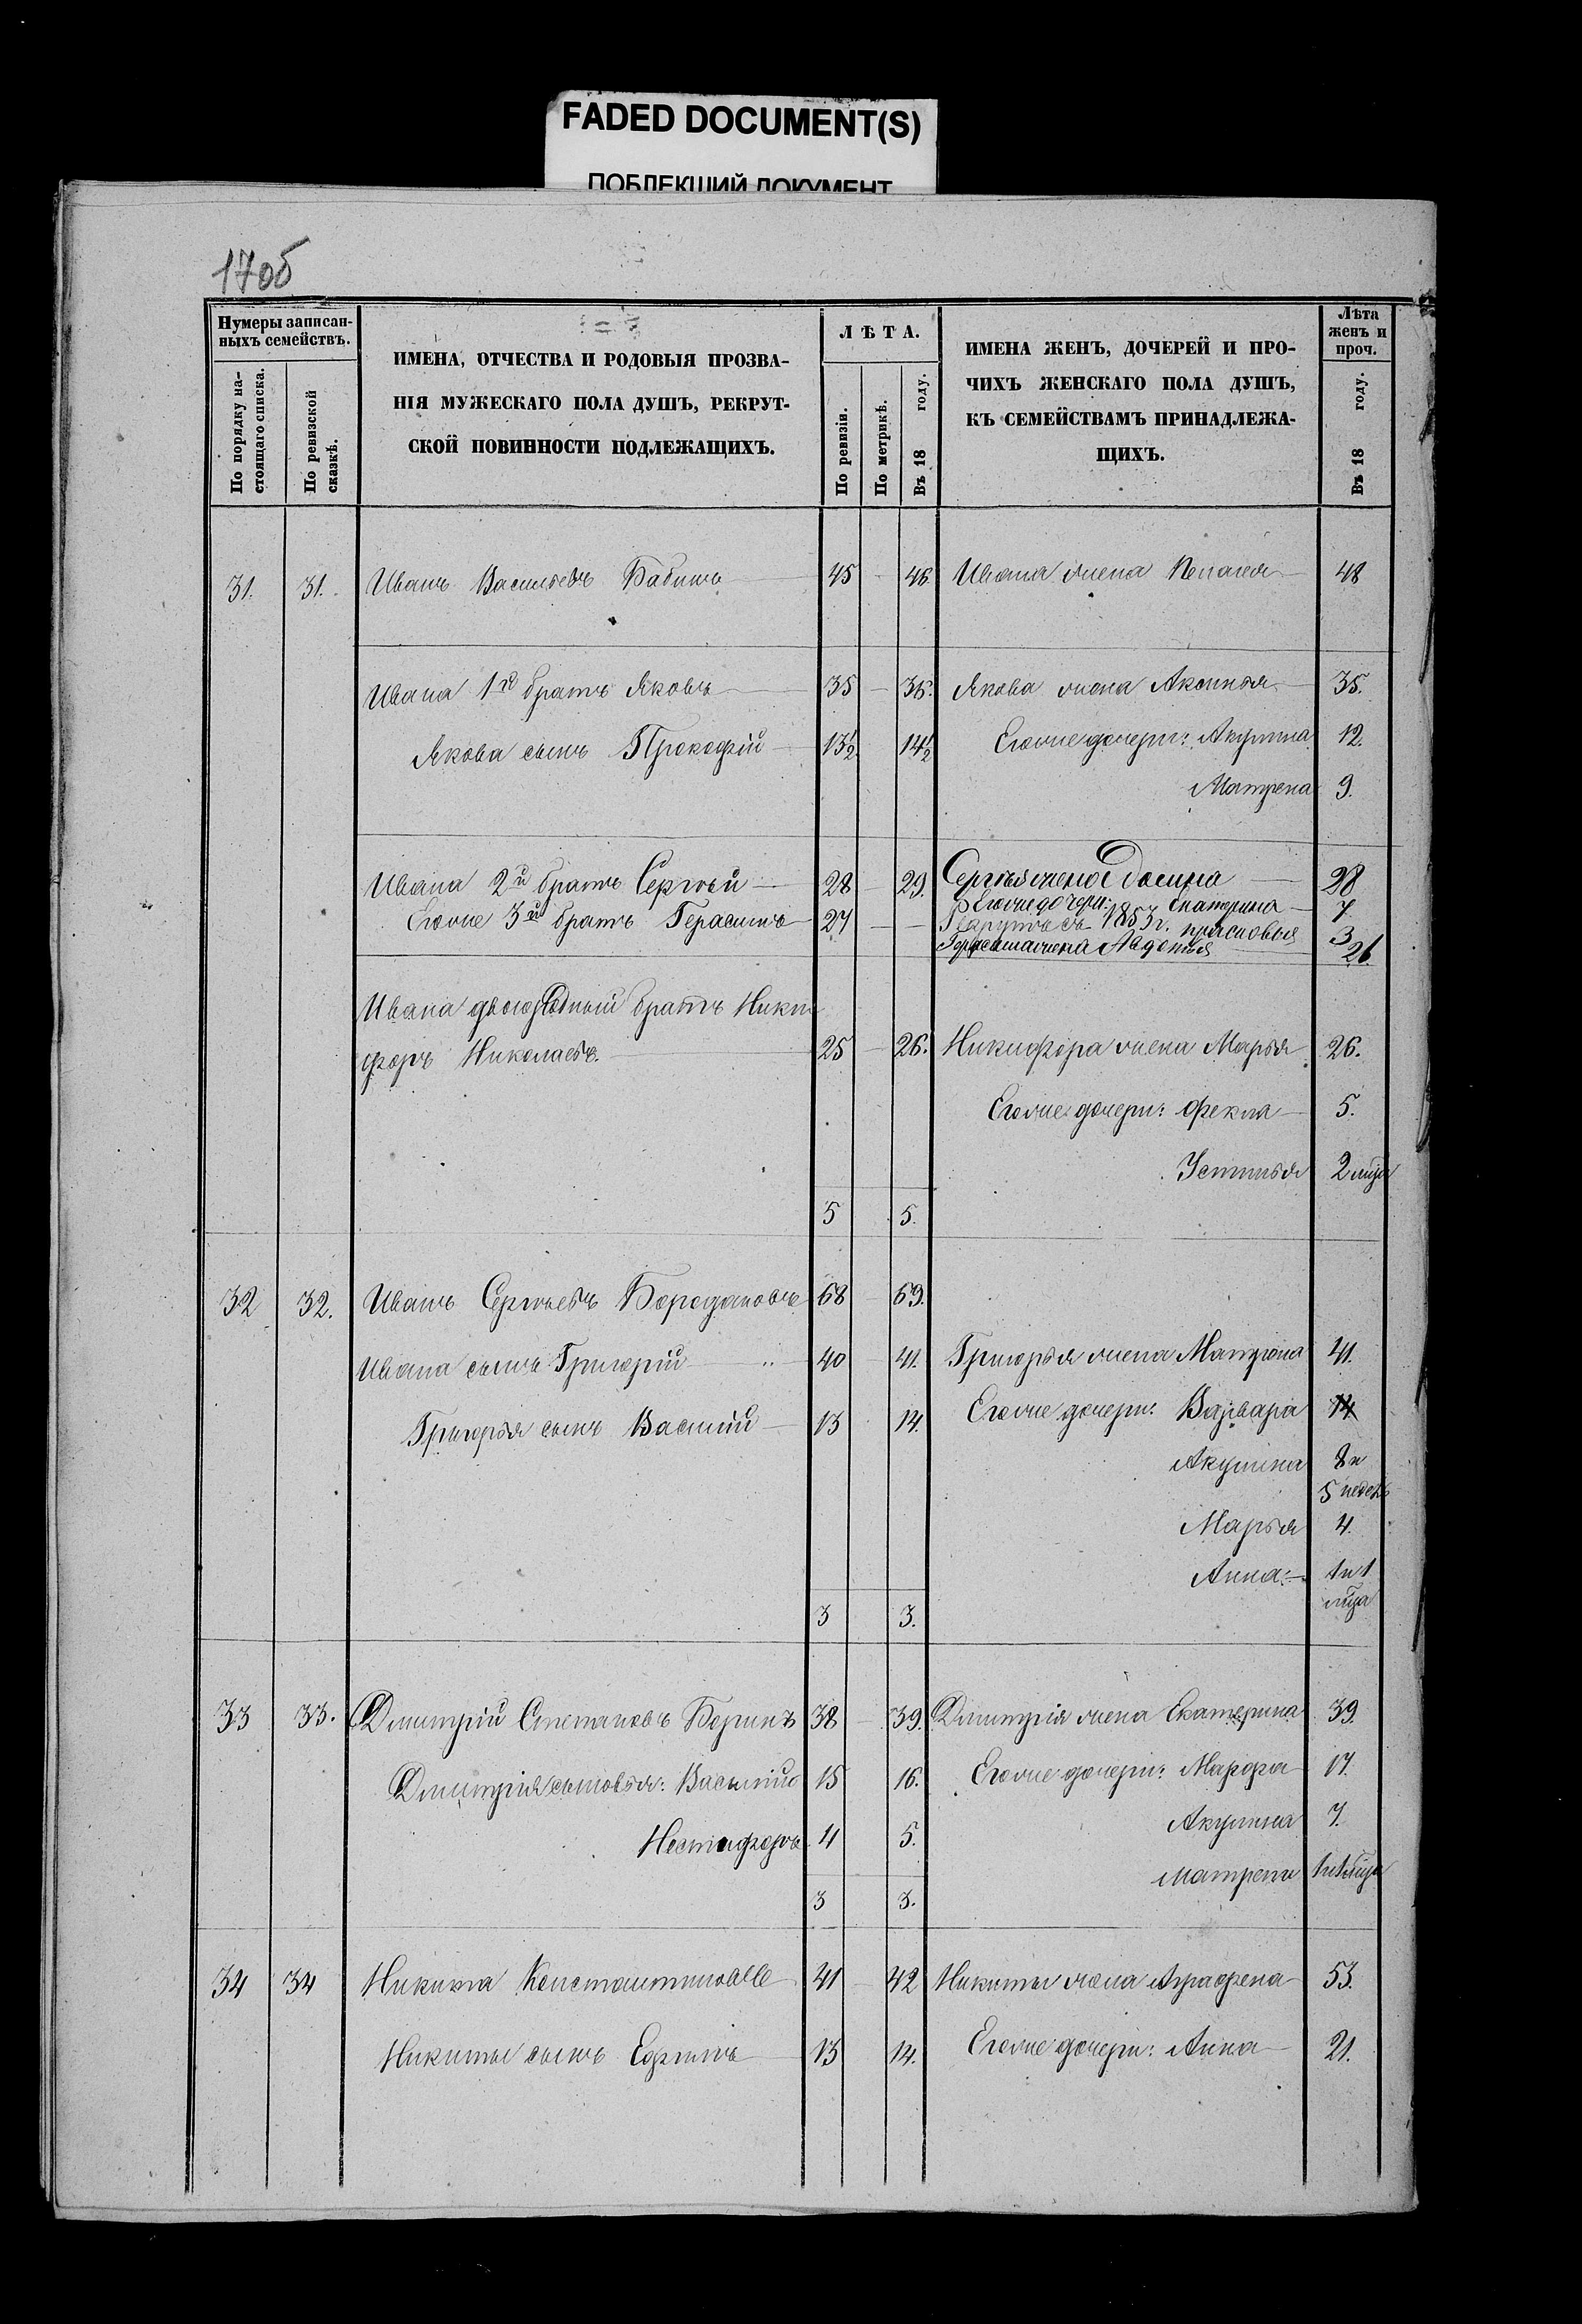 FADED DOCUMENT(S)
ПОБЛЕКШИЙ ДОКУМЕНТ
170б
Нумеры записан-
ныхъ семействъ.
По порядку на-
стоящаго списка.
По ревизской
сказкѣ.
ИМЕНА, ОТЧЕСТВА И РОДОВЫЯ ПРОЗВА-
НІЯ МУЖЕСКАГО ПОЛА ДУШЪ, РЕКРУТ-
СКОЙ ПОВИННОСТИ ПОДЛЕЖАЩИХЪ.
ЛѢТА.
По ревизіи.
По метрикѣ.
Въ 18 году.
ИМЕНА ЖЕНЪ, ДОЧЕРЕЙ И ПРО-
ЧИХЪ ЖЕНСКАГО ПОЛА ДУШЪ,
КЪ СЕМЕЙСТВАМЪ ПРИНАДЛЕЖА-
ЩИХЪ.
Лѣта
женъ и
проч.
Въ 18 году.
31. 31. Иванъ Васильевъ Бабинъ 45 46. Ивана жена Пелагея 48
Ивана 1й братъ Яковъ 35 36. Якова жена Аксинья 35.
Якова сынъ Прокофій 13 1/2 14 1/2 Егоже дочери: Акулина 12.
Матрена 9.
Ивана 2й братъ Сергѣй 28 29. Сергѣя жена 28
Егоже 3й братъ Герасимъ 27 Егоже дочери: Екатерина 7
1853 г. Прасковья 3
Герасима жена Авдотья 26.
Ивана двоюродный братъ Ники
форъ Николаевъ. 25 26. Никифора жена Марья 26.
Егоже дочери: Фекла 5.
Устинья 2 мѣсца
5 5.
32 32. Иванъ Сергѣевъ 68 69.
Ивана сынъ Григорій 40 41. Григорья жена Матрона 41.
Григорья сынъ Василій 13 14. Егоже дочери: Варвара 14
Акулина 8 и
5 недель
Марья 4.
Анна 1 и 1
мѣсца
3 3.
33 33. Дмитрій Степановъ 38 39. Дмитрія жена Екатерина 39.
Дмитрія сыновья: Василій 15 16. Егоже дочери: Марфа 17.
Никифоръ 4 5. Акулина 7.
Матрена
3 3.
34 34 Никита Константиновъ 41 42 Никиты жена Аграфена 53.
Никиты сынъ Ефимъ 13 14. Егоже дочери: Анна 21.